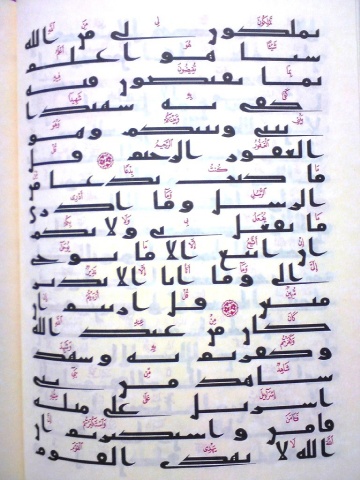 تملكون لي من الله
شيئا هو اعلم
بما تفيضون فيه
كفى به شهيدا
بيني وبينكم وهو
الغفور الرحيم قل
ما كنت بدعا من
الرسل وما ادري
ما يفعل بي ولا بكم
ان اتبع الا ما يوحى
الي وما انا الا نذير
مبين قل اريتم ان
كان من عند الله
وكفرتم به وشهد
شاهد من بني
اسريل على مثله
فامن واستكبرتم ان
الله لا يهدي القوم